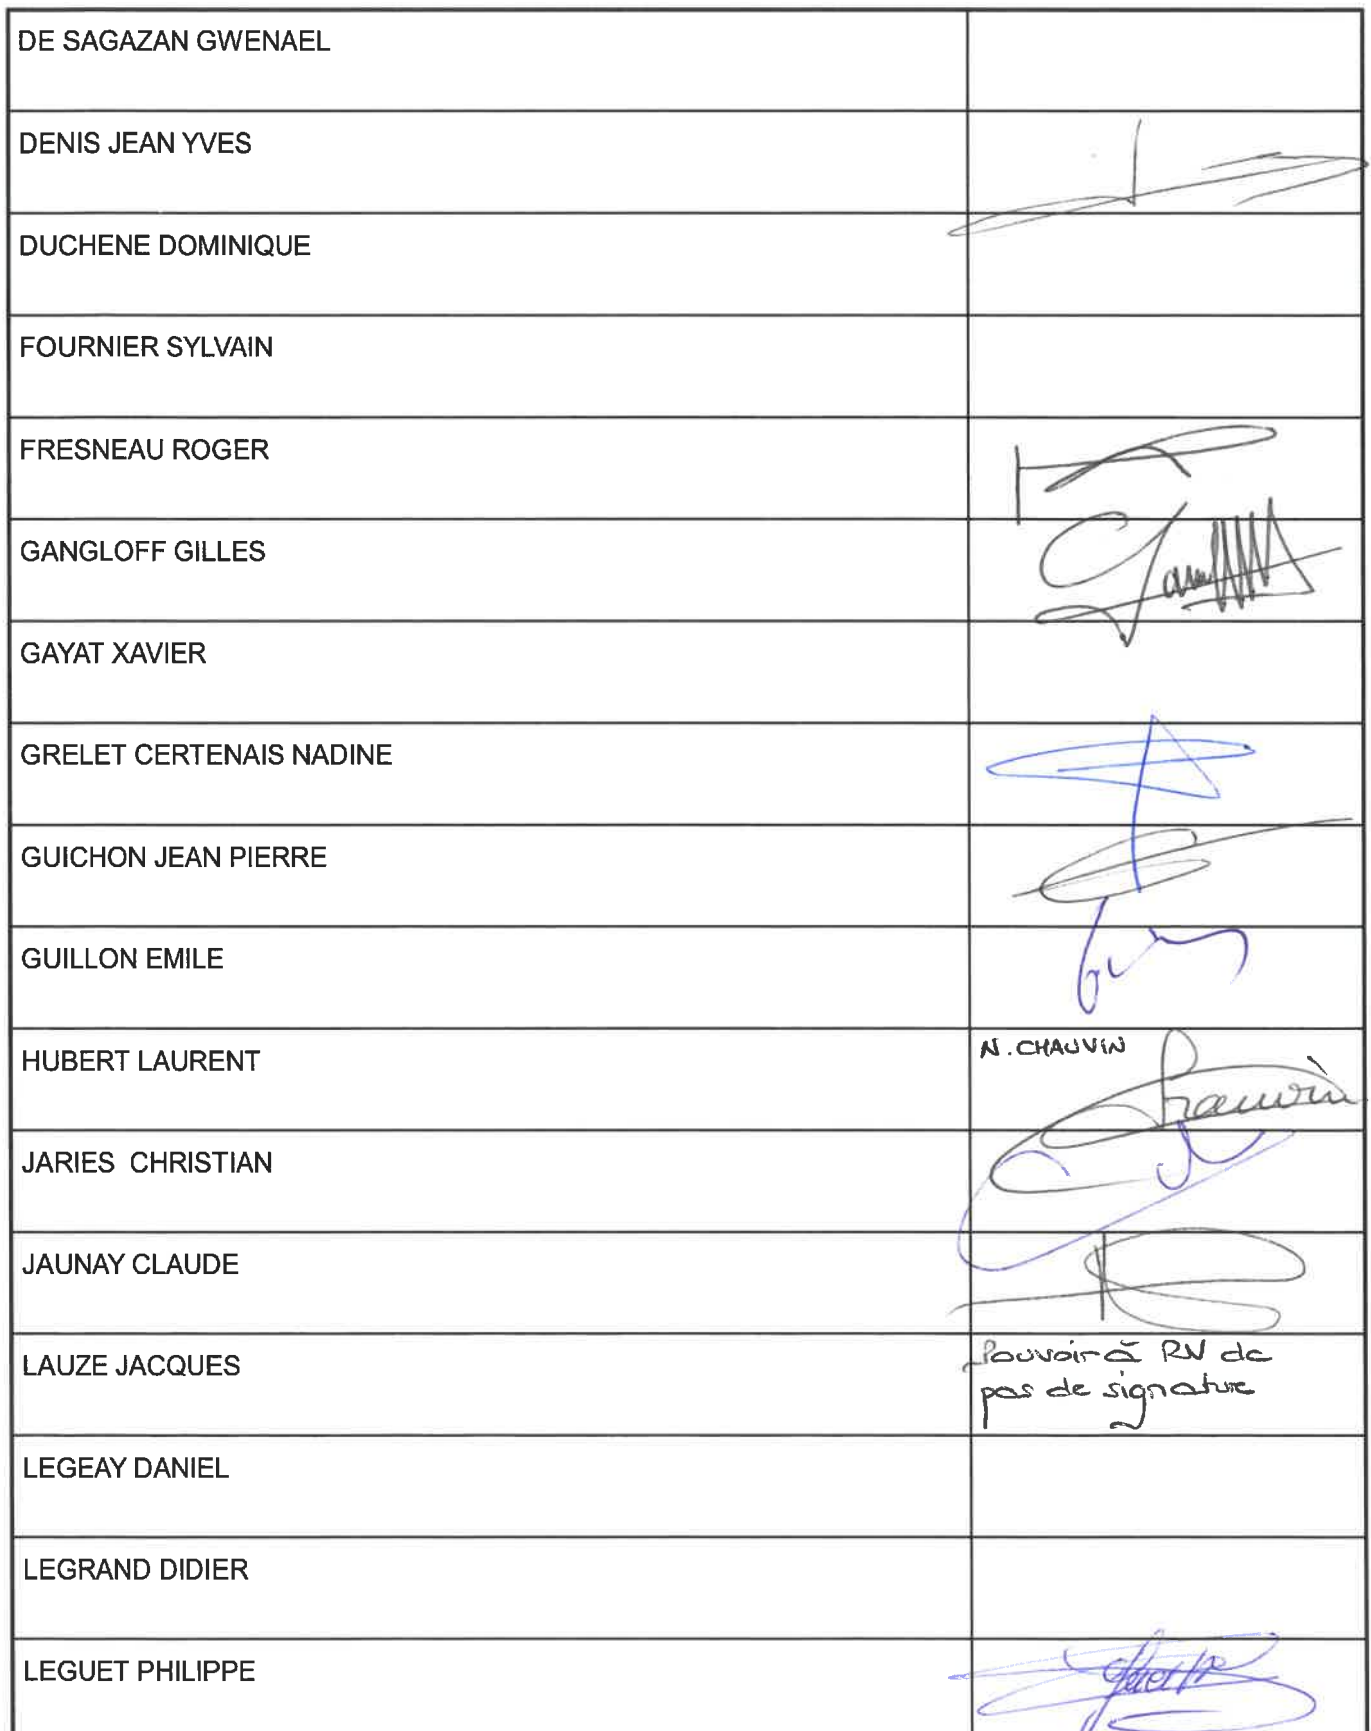 DE SAGAZAN GWENAEL
DENIS JEAN YVES
DUCHENE DOMINIQUE
FOURNIER SYLVAIN
FRESNEAU ROGER
GANGLOFF GILLES
GAYAT XAVIER
GRELET CERTENAIS NADINE
GUICHON JEAN PIERRE
GUILLON EMILE
HUBERT LAURENT
N. CHAUVIN
Chauvin
JARIES CHRISTIAN
JAUNAY CLAUDE
LAUZE JACQUES
Pouvoir à RN de
pas de signature
LEGEAY DANIEL
LEGRAND DIDIER
LEGUET PHILIPPE